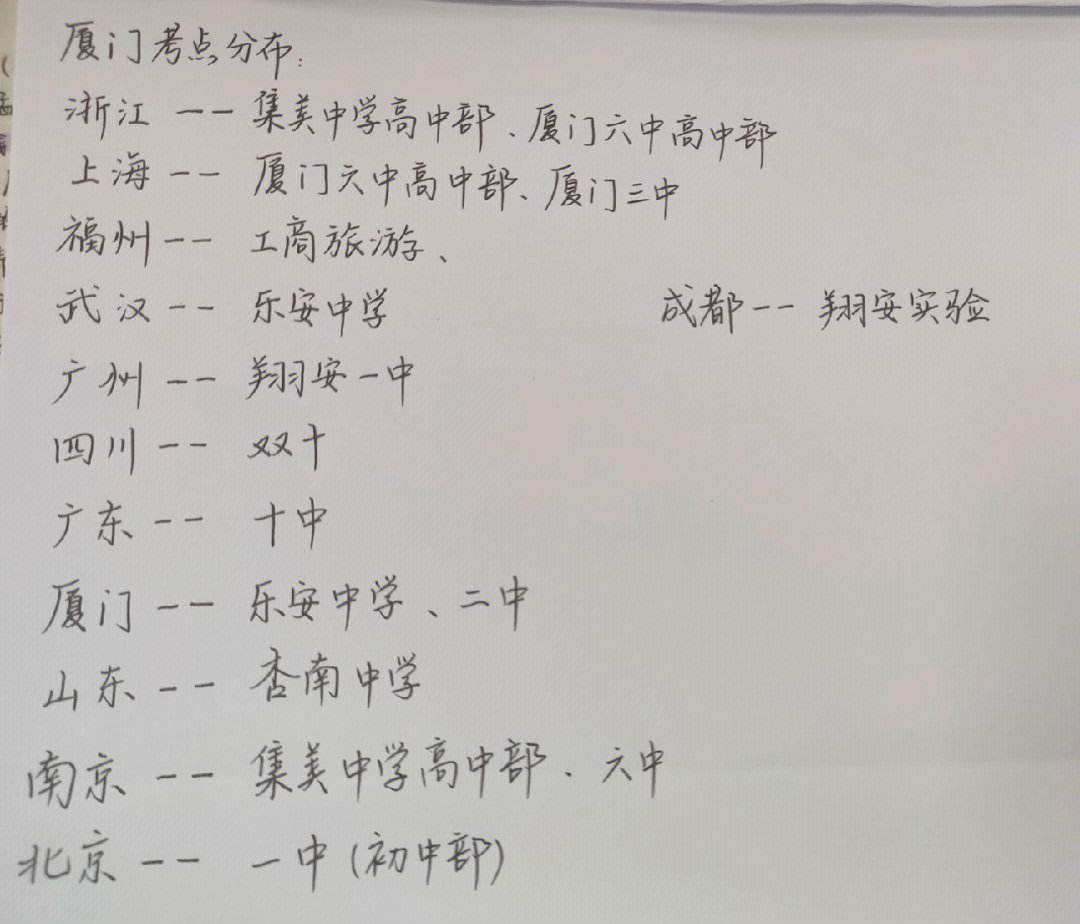 厦门考点分布:
浙江 -- 集美中学高中部、厦门六中高中部
上海 -- 厦门六中高中部、厦门三中
福州 -- 工商旅游、
武汉 -- 乐安中学
成都 -- 翔安实验
广州 -- 翔安一中
四川 -- 双十
广东 -- 十中
厦门 -- 乐安中学、二中
山东 -- 杏南中学
南京 -- 集美中学高中部、六中
北京 -- 一中(初中部)